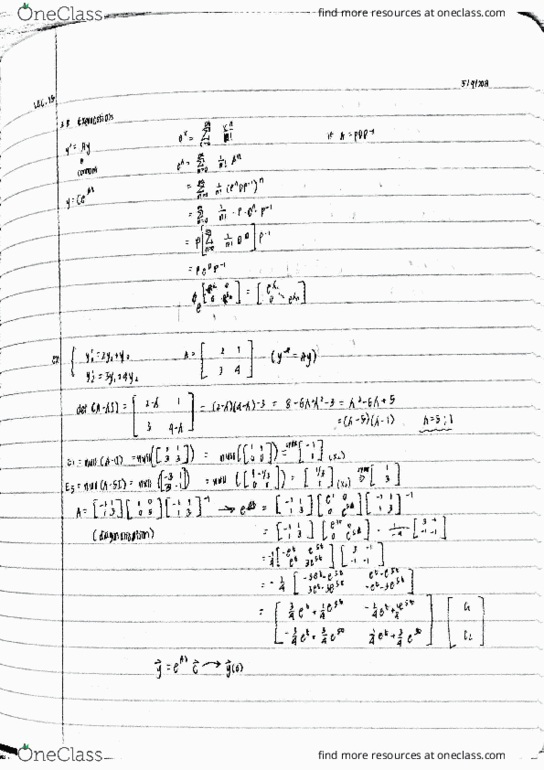 OneClass
find more resources at oneclass.com
5/9/2018
y' = Ay
e^x = \sum_{n=0}^{\infty} \frac{x^n}{n!}
if A = PDP^{-1}
y = Ce^{At}
e^A = \sum_{n=0}^{\infty} \frac{1}{n!} A^n
= \sum_{n=0}^{\infty} \frac{1}{n!} (PDP^{-1})^n
= \sum_{n=0}^{\infty} \frac{1}{n!} P D^n P^{-1}
= P [\sum_{n=0}^{\infty} \frac{1}{n!} D^n] P^{-1}
= P e^D P^{-1}
ex { y_1' = 2y_1 + y_2
y_2' = 3y_1 + 4y_2
A = [2 1; 3 4] (y' = Ay)
det (A-λI) = [2-λ 1; 3 4-λ] = (2-λ)(4-λ)-3 = 8-6λ+λ^2-3 = λ^2-6λ+5
= (λ-5)(λ-1) λ=5, 1
E_1 = null (A-1I) = null([1 1; 3 3]) = null([1 1; 0 0]) = span [-1; 1]
E_5 = null (A-5I) = null [-3 1; 3 -1] = null ([1 -1/3; 0 0]) = [1/3; 1] span [1; 3]
A = [-1 1; 1 3] [1 0; 0 5] [-1 1; 1 3]^{-1} → e^{At} = [-1 1; 1 3] [e^t 0; 0 e^{5t}] [-1 1; 1 3]^{-1}
(diagonalization)
= [-1 1; 1 3] [e^t 0; 0 e^{5t}] \cdot \frac{1}{-4} [3 -1; -1 -1]
= -\frac{1}{4} [-e^t e^{5t}; e^t 3e^{5t}] [3 -1; -1 -1]
= -\frac{1}{4} [-3e^t-e^{5t} e^t-e^{5t}; 3e^t-3e^{5t} -e^t-3e^{5t}]
= [\frac{3}{4}e^t+\frac{1}{4}e^{5t} -\frac{1}{4}e^t+\frac{1}{4}e^{5t}; -\frac{3}{4}e^t+\frac{3}{4}e^{5t} \frac{1}{4}e^t+\frac{3}{4}e^{5t}] [c_1; c_2]
\vec{y} = e^{At} \vec{c} → \vec{y}(0)
OneClass
find more resources at oneclass.com